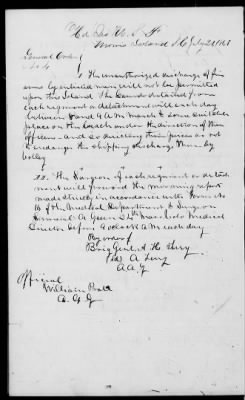 Hd Qrs U. S. F
Morris Island S. C. July 21 1863
General Orders
No 4
I The unauthorized discharge of fire
arms by enlisted men will not be permitted
upon this Island. The Guards detailed from
each regiment or detachment will each day
between 8 and 9 A M march to some suitable
place on the beach under the direction of their
officers and so direct their pieces as not
to endanger the shipping discharge them by
volley
II. The Surgeon of each regiment or detach
ment will forward the morning report
made strictly in accordance with form
of the Medical Department to Surgeon
Samuel A Green 24th Mass Vols Medical
Director before 9 o'clock A M each day
By order of
Brig Genl A H Terry
A A G
Official
William
A. A. G